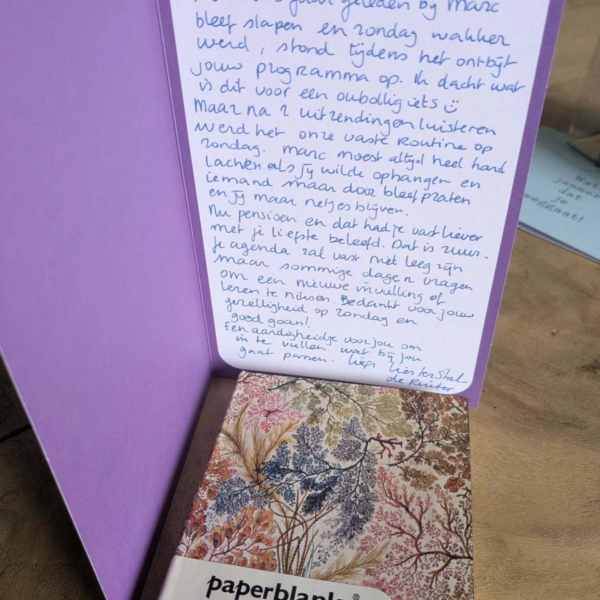 geleden bij Marc
bleef slapen en zondag wakker
werd, stond tijdens het ontbijt
jouw programma op. Ik dacht wat
is dit voor een oubollig iets ☺
Maar na 2 uitzendingen luisteren
werd het onze vaste routine op
zondag. Marc moest altijd heel hard
lachen als jij wilde ophangen en
iemand maar door bleef praten
en jij maar netjes blijven.
Nu pensioen en dat had je vast liever
met je liefste beleefd. Dat is zuur.
Je agenda zal vast niet leeg zijn
maar sommige dagen vragen
om een nieuwe invulling of
leren te niksen. Bedankt voor jouw
gezelligheid op zondag en
goed gaan!
Een aardigheidje voor jou om
in te vullen wat bij jou
gaat passen. Liefs
de Ruiter
Wat
jammer
dat
je
weggaat!
paperblanks®